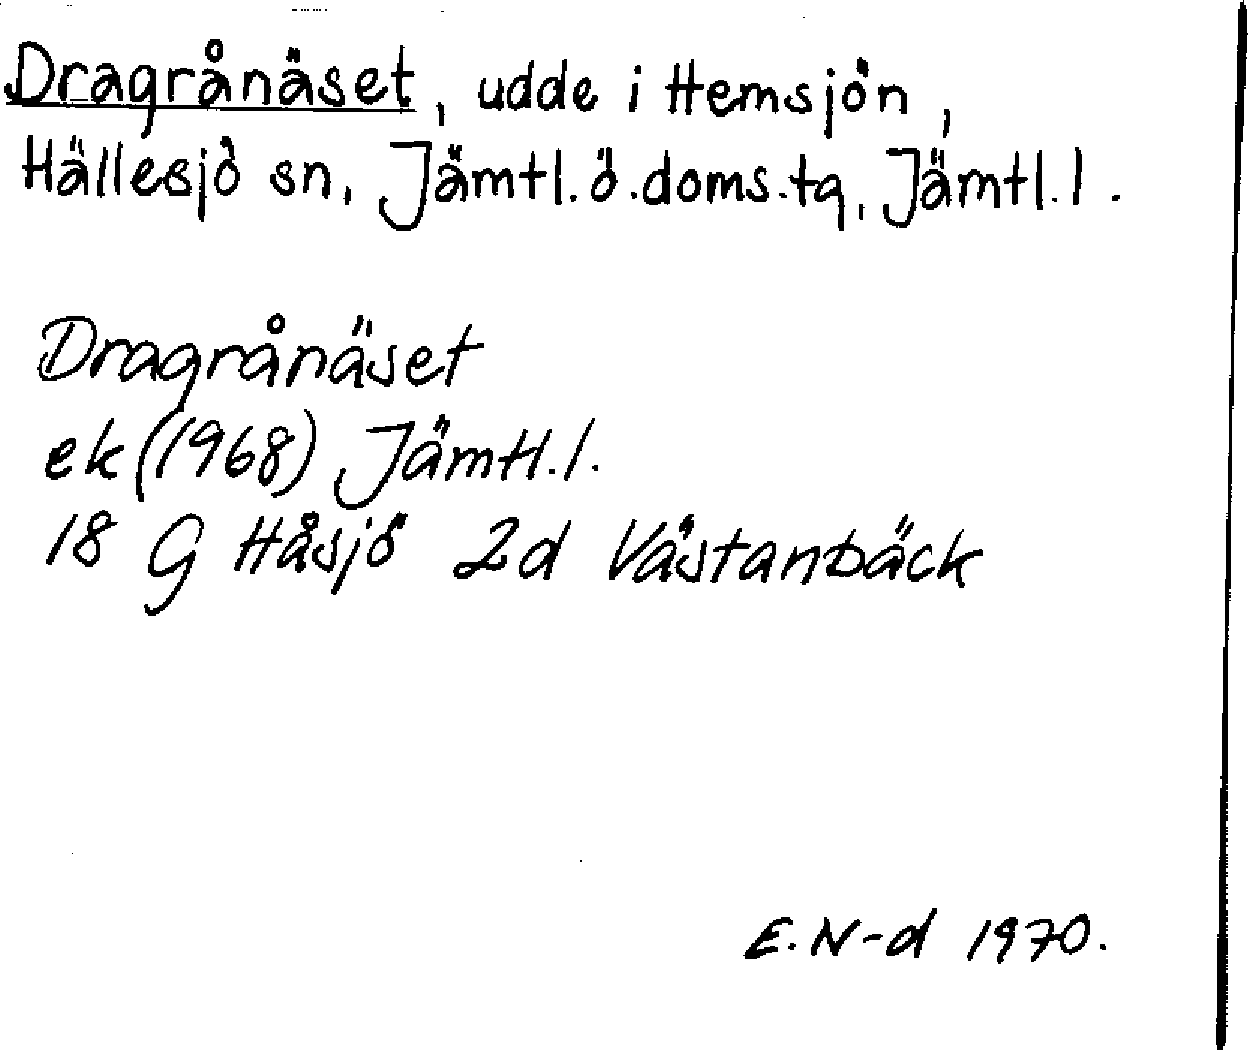 Dragrånäset, udde i Hemsjön,
Hällesjö sn, Jämtl. ö. doms. tg, Jämtl. l.
Dragrånäset
ek (1968) Jämtl. l.
18 G Håsjö 2d Västanbäck
E. N-d 1970.